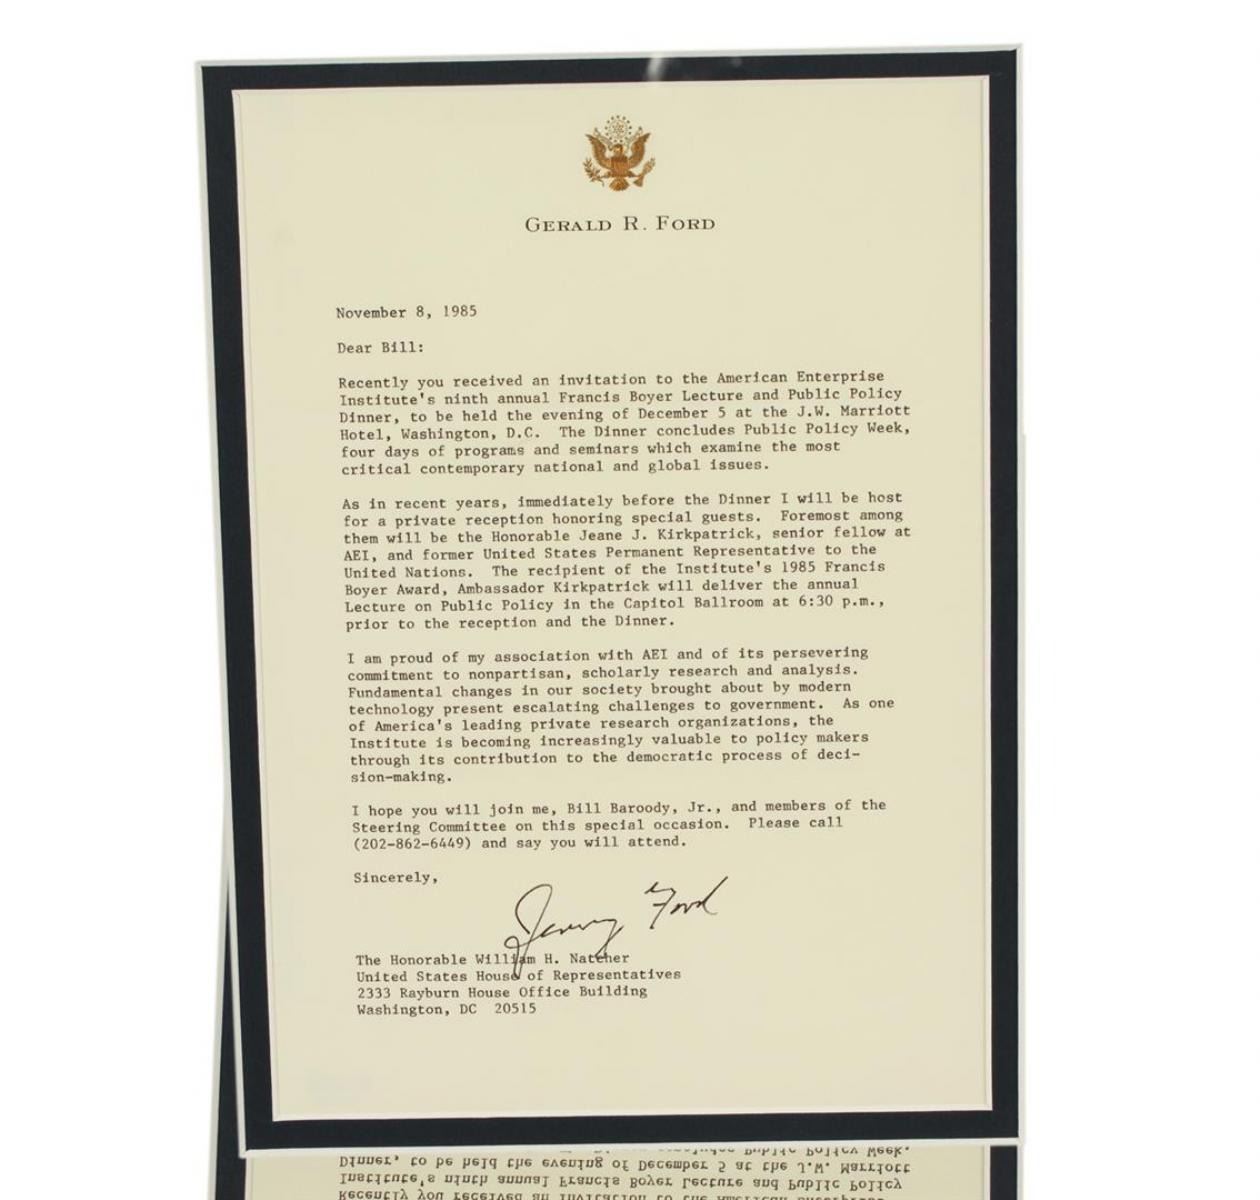 GERALD R. FORD
November 8, 1985
Dear Bill:
Recently you received an invitation to the American Enterprise
Institute's ninth annual Francis Boyer Lecture and Public Policy
Dinner, to be held the evening of December 5 at the J.W. Marriott
Hotel, Washington, D.C. The Dinner concludes Public Policy Week,
four days of programs and seminars which examine the most
critical contemporary national and global issues.
As in recent years, immediately before the Dinner I will be host
for a private reception honoring special guests. Foremost among
them will be the Honorable Jeane J. Kirkpatrick, senior fellow at
AEI, and former United States Permanent Representative to the
United Nations. The recipient of the Institute's 1985 Francis
Boyer Award, Ambassador Kirkpatrick will deliver the annual
Lecture on Public Policy in the Capitol Ballroom at 6:30 p.m.,
prior to the reception and the Dinner.
I am proud of my association with AEI and of its persevering
commitment to nonpartisan, scholarly research and analysis.
Fundamental changes in our society brought about by modern
technology present escalating challenges to government. As one
of America's leading private research organizations, the
Institute is becoming increasingly valuable to policy makers
through its contribution to the democratic process of deci-
sion-making.
I hope you will join me, Bill Baroody, Jr., and members of the
Steering Committee on this special occasion. Please call
(202-862-6449) and say you will attend.
Sincerely,
Jerry Ford
The Honorable William H. Natcher
United States House of Representatives
2333 Rayburn House Office Building
Washington, DC 20515
Public Policy Week,
Dinner, to be held the evening of December 5 at the J.W. Marriott
Institute's ninth annual Francis Boyer Lecture and Public Policy
Recently you received an invitation to the American Enterprise